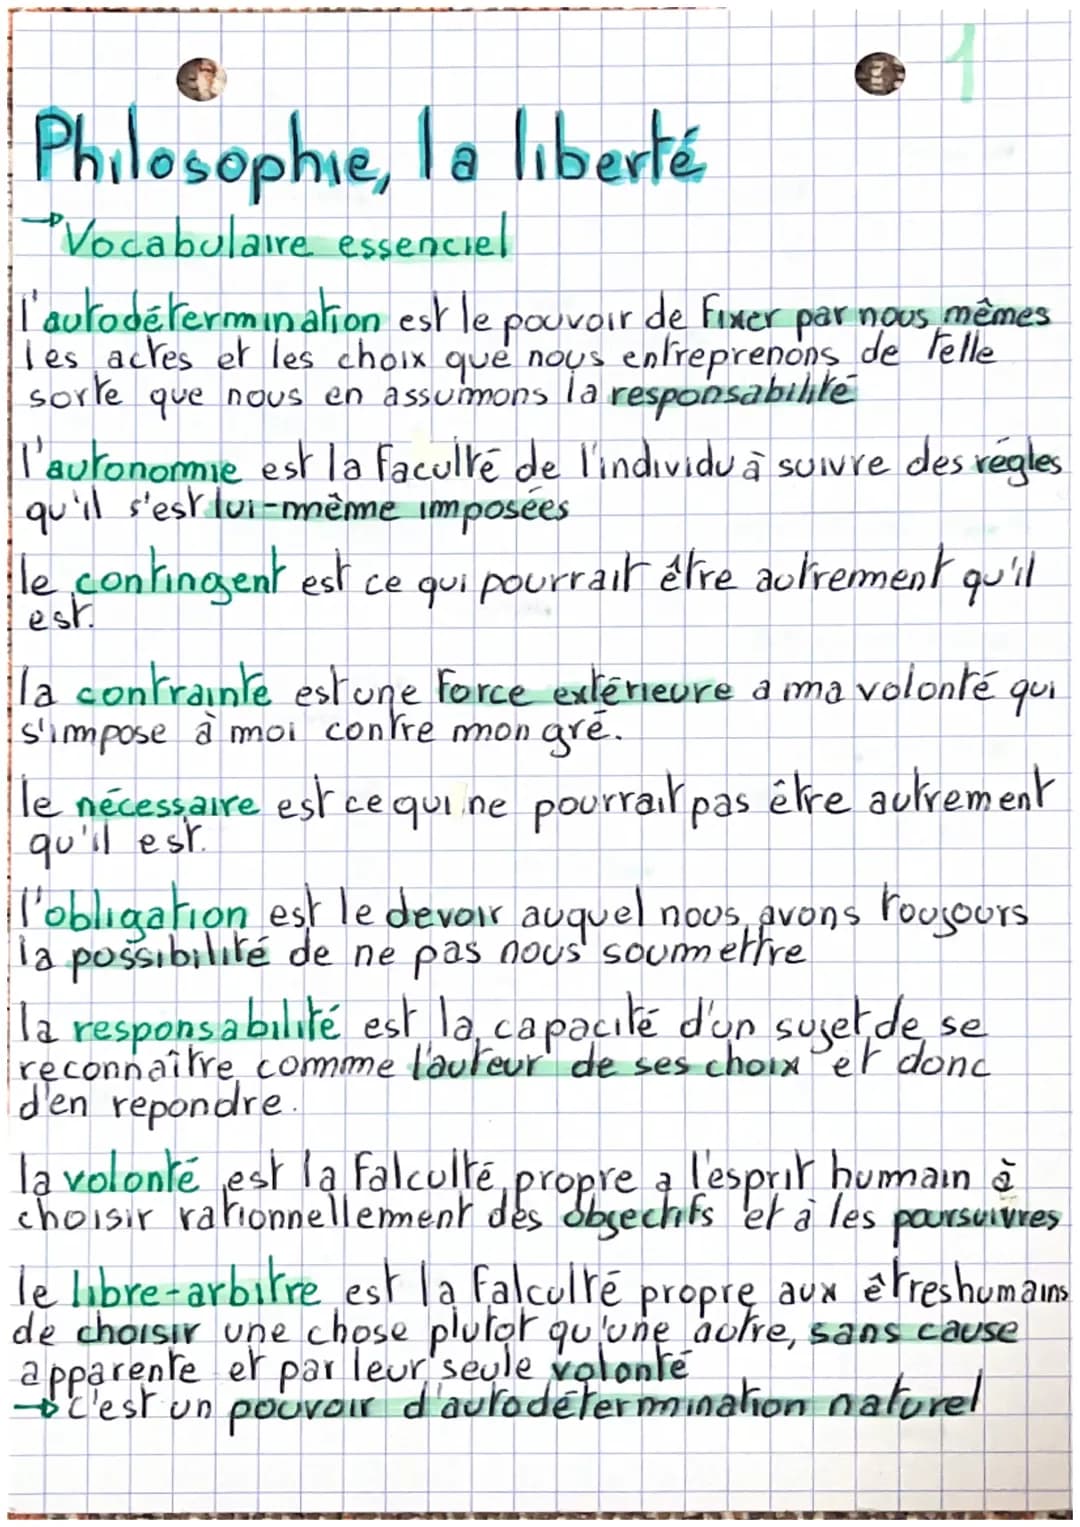 1
Philosophie, la liberté
→Vocabulaire essenciel
l'autodétermination est le pouvoir de fixer par nous mêmes
les actes et les choix que nous entreprenons de telle
sorte que nous en assumons la responsabilité
l'autonomie est la faculté de l'individu à suivre des règles
qu'il s'est lui-même imposées
le contingent est ce qui pourrait être autrement qu'il
est.
la contrainte est une force extérieure a ma volonté qui
s'impose à moi contre mon gré.
le nécessaire est ce qui ne pourrait pas être autrement
qu'il est.
l'obligation est le devoir auquel nous avons toujours
la possibilité de ne pas nous soumettre
la responsabilité est la capacité d'un sujet de se
reconnaître comme l'auteur de ses choix et donc
d'en repondre.
la volonté est la falculté propre a l'esprit humain à
choisir rationnellement des objectifs et à les poursuivres
le libre-arbitre est la falculté propre aux êtres humains
de choisir une chose plutot qu'une autre, sans cause
apparente et par leur seule volonté
→c'est un pouvoir d'autodétermination naturel